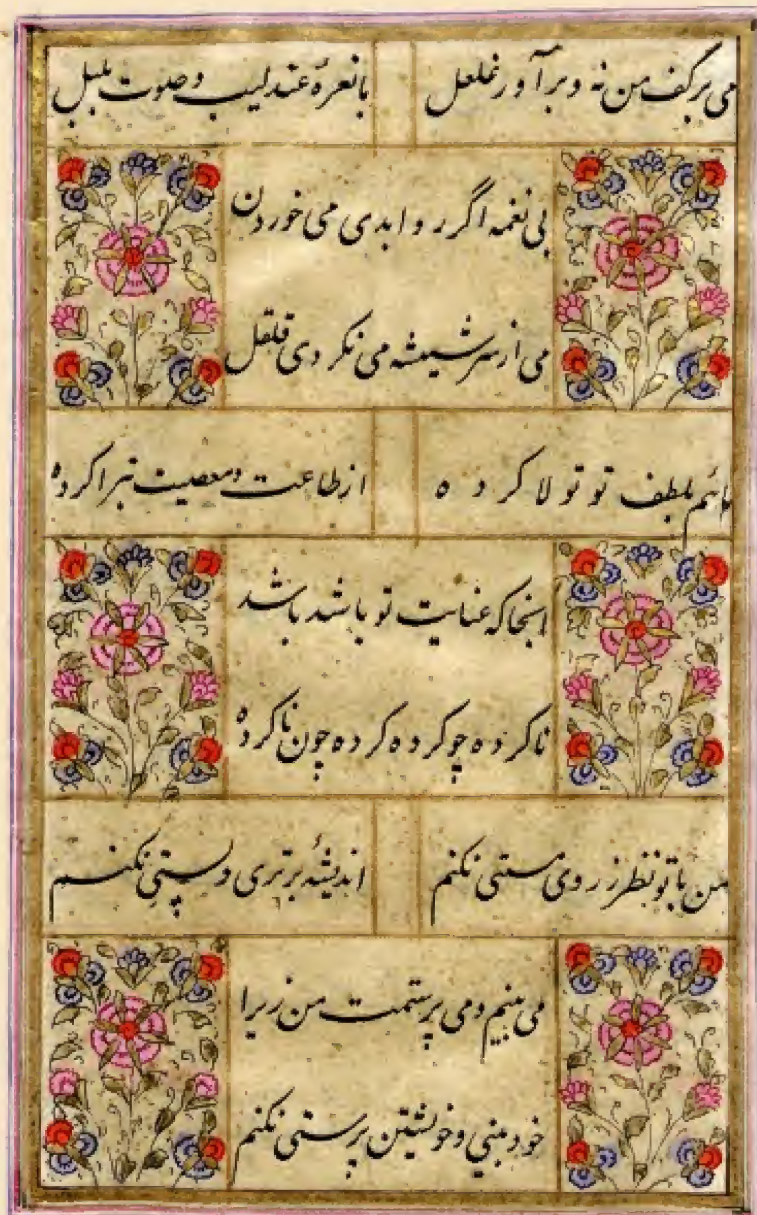 می بر کف من نه و برآور غلغل
با نعرهٔ عندلیب و صوت بلبل
بی نغمه اگر روا بدی می خوردن
می از سر شیشه می نکردی قلقل
مائیم بلطف تو تولا کرده
از طاعت و معصیت تبرا کرده
انجا که عنایت تو باشد باشد
ناکرده چو کرده کرده چون ناکرده
من با تو نظر ز روی مستی نکنم
اندیشهٔ برتری و پستی نکنم
می بینم و می پرستمت من زیرا
خود بینی و خویشتن پرستی نکنم